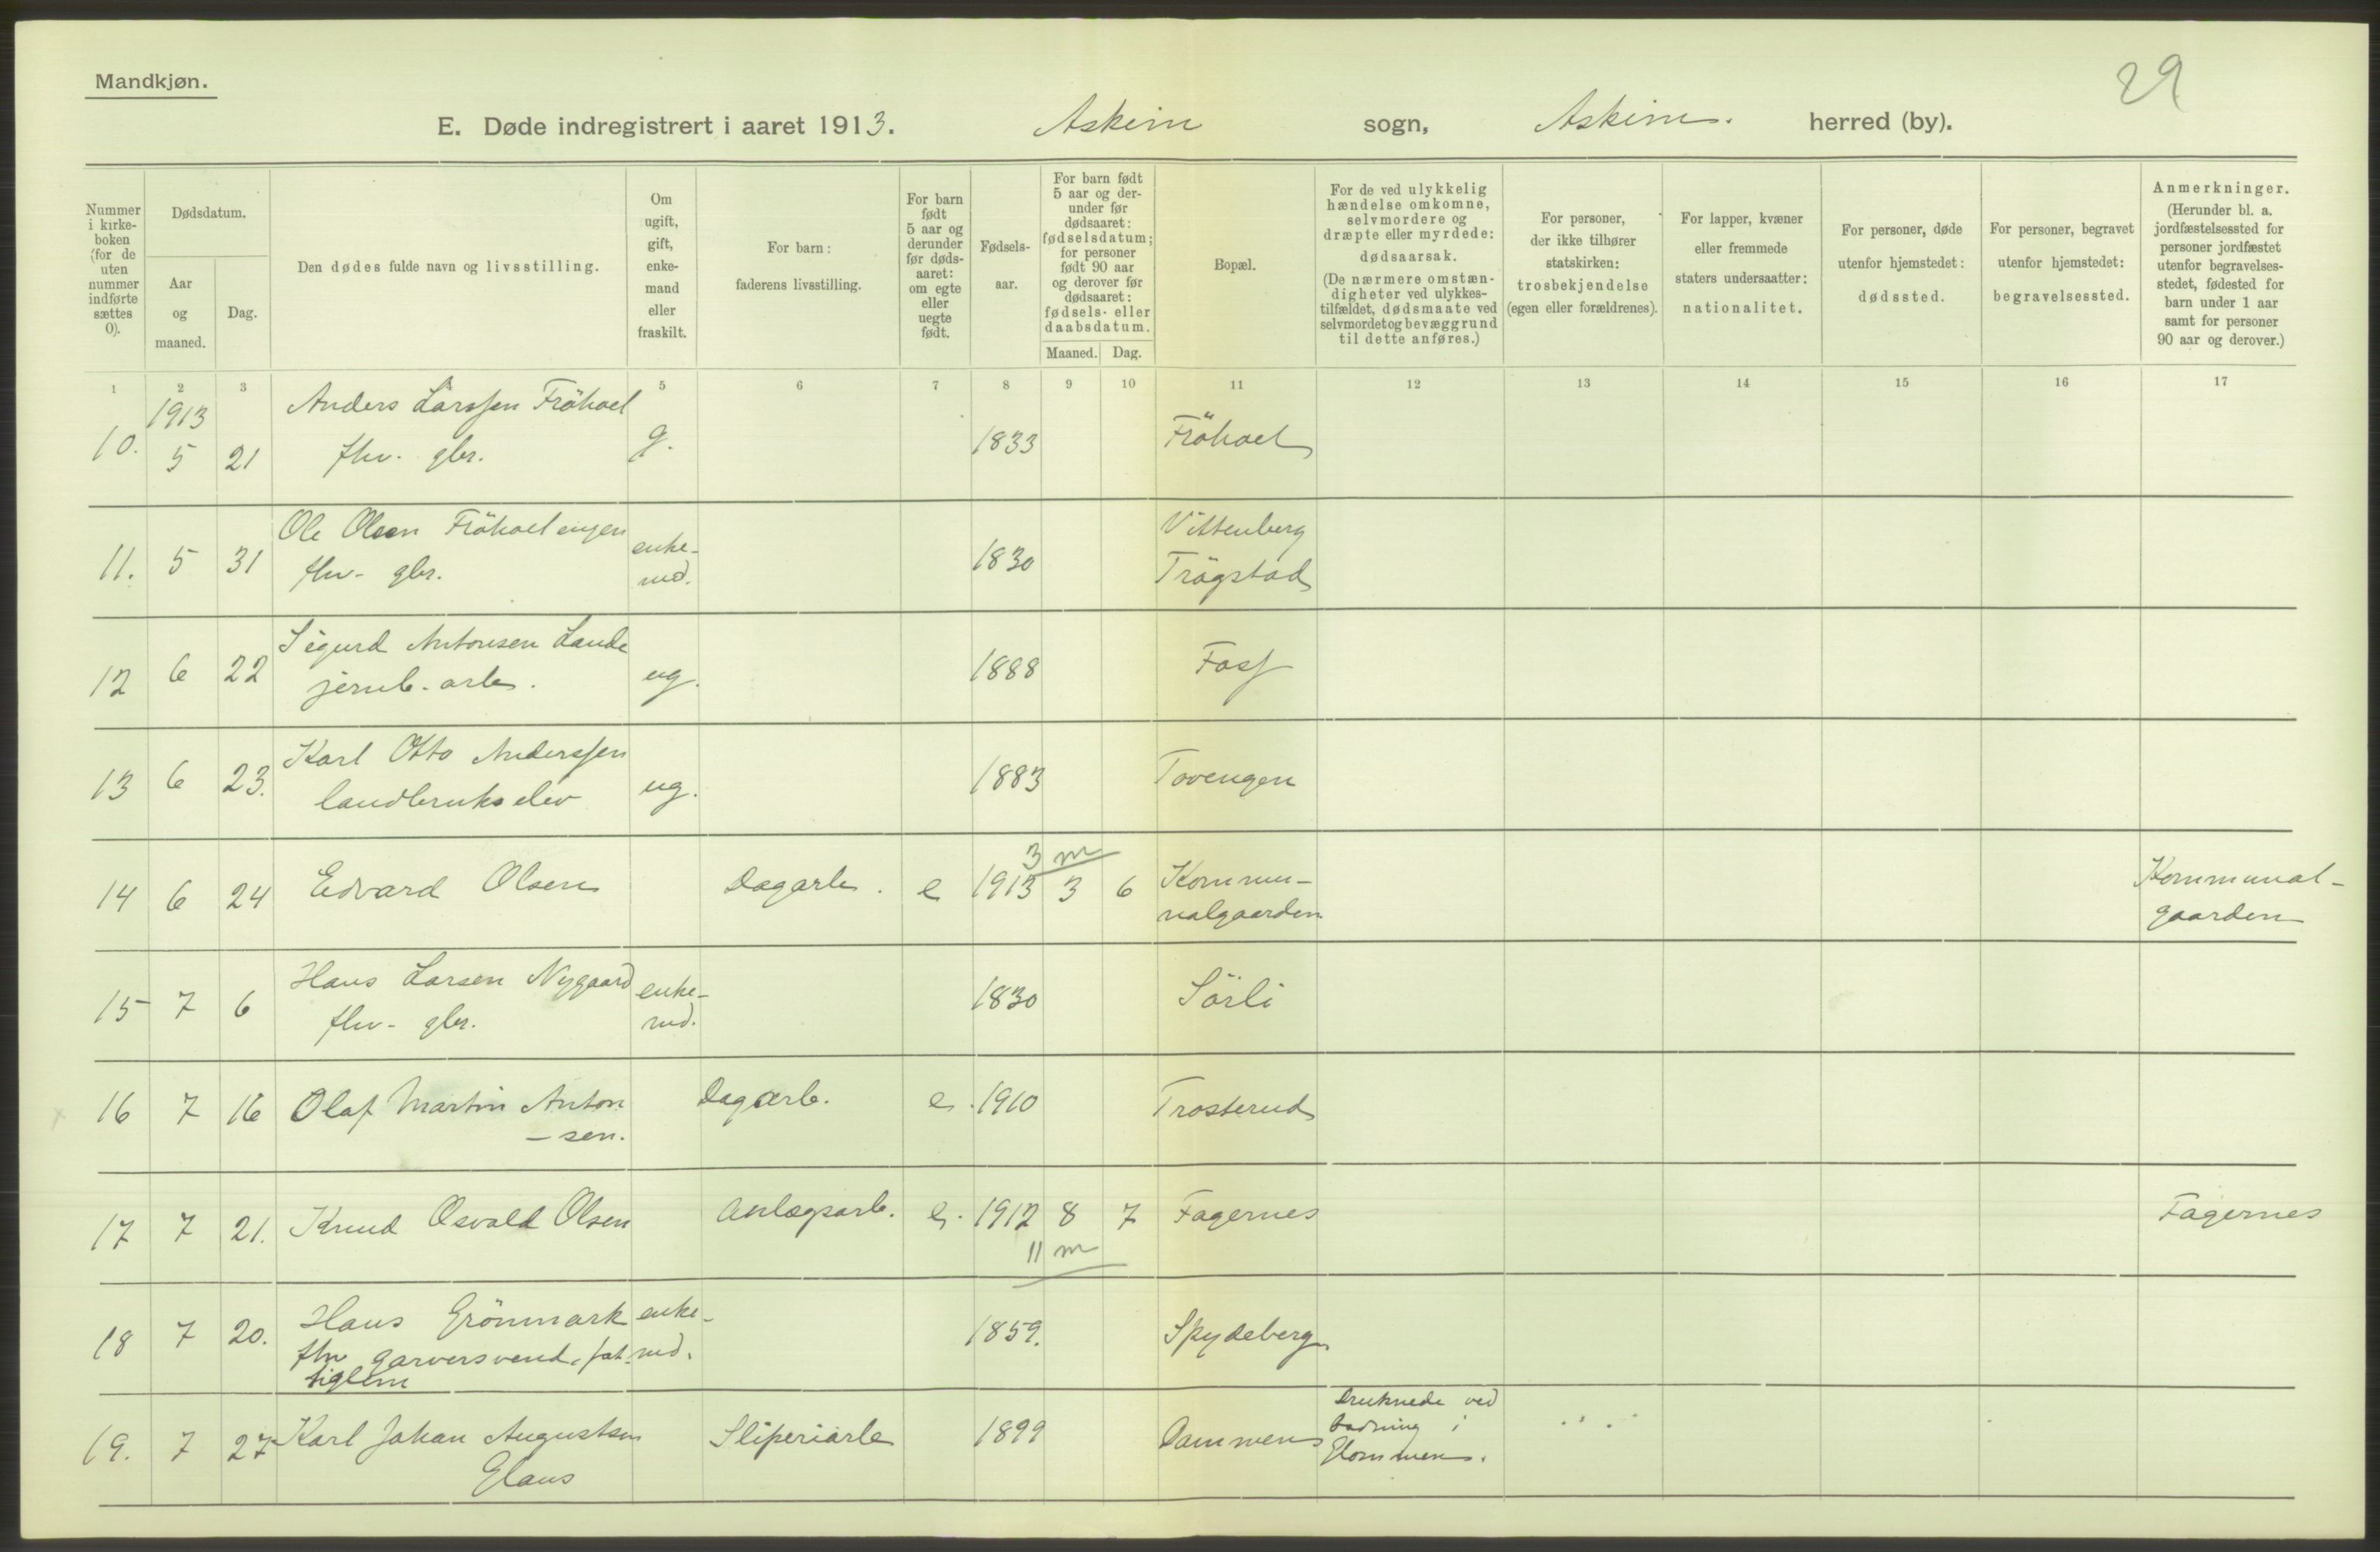 Mandkjøn.
29
E. Døde indregistrert i aaret 1913. Askim sogn, Askim. herred (by).
Nummer i kirke-boken (for de uten nummer indførte sættes 0).
Dødsdatum.
Aar og maaned.
Dag.
Den dødes fulde navn og livsstilling.
Om ugift, gift, enke-mand eller fraskilt.
For barn: faderens livsstilling.
For barn født 5 aar og derunder før døds-aaret: om egte eller uegte født.
Fødsels-aar.
For barn født 5 aar og der-under før dødsaaret: fødselsdatum; for personer født 90 aar og derover før dødsaaret: fødsels- eller daabsdatum.
Maaned. Dag.
Bopæl.
For de ved ulykkelig hændelse omkomne, selvmordere og dræpte eller myrdede: dødsaarsak. (De nærmere omstæn-digheter ved ulykkes-tilfældet, dødsmaate ved selvmordet og bevæggrund til dette anføres.)
For personer, der ikke tilhører statskirken: trosbekjendelse (egen eller forældrenes).
For lapper, kvæner eller fremmede staters undersaatter: nationalitet.
For personer, døde utenfor hjemstedet: dødssted.
For personer, begravet utenfor hjemstedet: begravelsessted.
Anmerkninger. (Herunder bl. a. jordfæstelsessted for personer jordfæstet utenfor begravelses-stedet, fødested for barn under 1 aar samt for personer 90 aar og derover.)
1 2 3 5 6 7 8 9 10 11 12 13 14 15 16 17
1913 Anders Larssen Fröhoel
10. 5 21 fhv. gbr. g. 1833 Fröhoel
Ole Olsen Fröhoelengen Vittenberg
11. 5 31 fhv- gbr. enke-md. 1830 Trögstad
Sigurd Antonsen Lande
12 6 22 jernb. arb. ug. 1888 Foss
Karl Otto Anderssen
13 6 23. landbrukselev ug. 1883 Tovengen
3 m
14 6 24 Edvard Olsen Dagarb. e 1913 3 6 Kommu-nalgaarden Kommunal-gaarden
Hans Larsen Nygaard
15 7 6 fhv- gbr. enke-md. 1830 Sörli
16 7 16 Olaf Martin Anton-sen. Dagarb. e. 1910 Trosterud
17 7 21. Knud Osvald Olsen Anlægsarb. e. 1912 8 7 Fagernes Fagernes
11 m
18 7 20. Hans Grönmark enke-md. 1859. Spydeberg
fhv garversvend, fat-
tiglem
19. 7 27 Karl Johan Augustsen Sliperiarb 1899 Dammen Druknede ved
badning i
Glommen.
Glaus